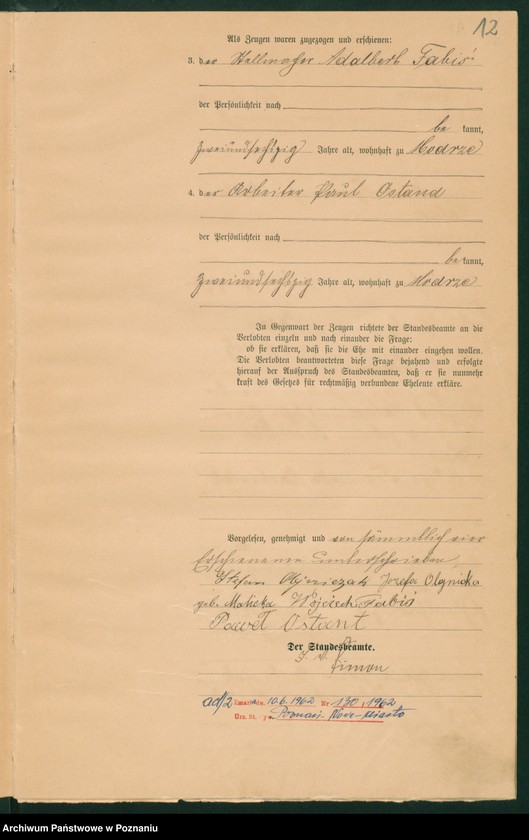 12
Als Zeugen waren zugezogen und erschienen:
3. der Stellmacher Adalbert Fabiś
der Persönlichkeit nach
be kannt,
zweiundsechzig Jahre alt, wohnhaft zu Modrze
4. der Arbeiter Paul Ostand
der Persönlichkeit nach
be kannt,
zweiundsechzig Jahre alt, wohnhaft zu Modrze
In Gegenwart der Zeugen richtete der Standesbeamte an die
Verlobten einzeln und nach einander die Frage:
ob sie erklären, daß sie die Ehe mit einander eingehen wollen.
Die Verlobten beantworteten diese Frage bejahend und erfolgte
hierauf der Ausspruch des Standesbeamten, daß er sie nunmehr
kraft des Gesetzes für rechtmäßig verbundene Eheleute erkläre.
Vorgelesen, genehmigt und von sämmtlich vier
Erschienenen unterschrieben
Stefan Józefa
geb. Malicka Wojciech Fabiś
Paweł Ostant
Der Standesbeamte.
Simon
ad/2 10.6.1962 Nr 130, 1962
Poznań-Nowe-Miasto
Archiwum Państwowe w Poznaniu